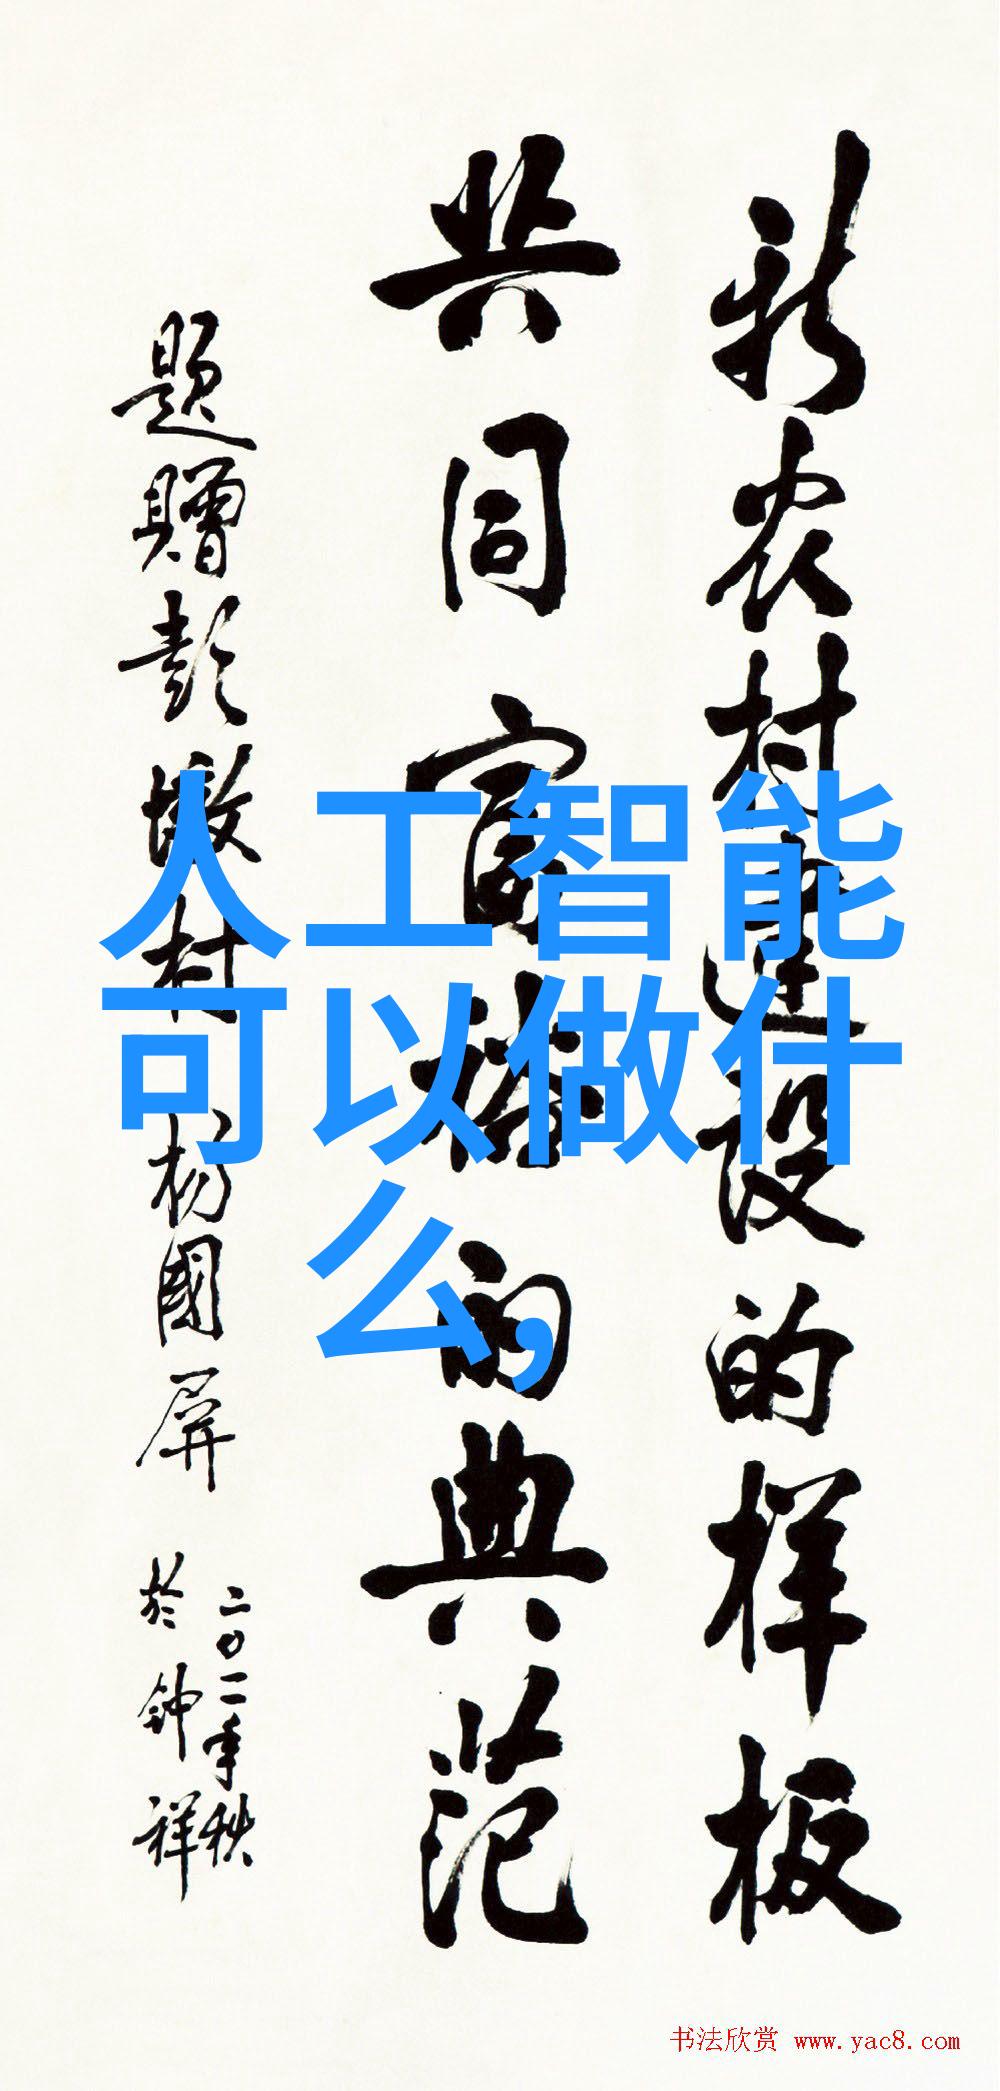 新农村建设的样板
共同富裕的典范
题赠彭墩村杨国屏
二〇一一年秋
於钟祥
人工智能
可以做什
么,
书法欣赏 www.yac8.com